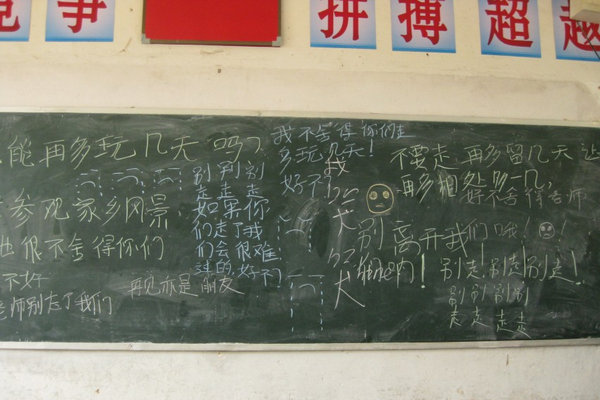 竞 争
拼 搏 超 越
能再多玩几天吗?
参观家乡风景
也很不舍得你们
不好
老师别忘了我们
再见亦是朋友
别别别
走走走
如果你
们走了我
们会很难
过的,好不
我不舍得你们走
多玩几天!
好不
我哭
不要走,再多留几天
再多相处多一几,
好不舍得老师
别离开我们哦!
别走!别走!别走!
别别别别
走走走走